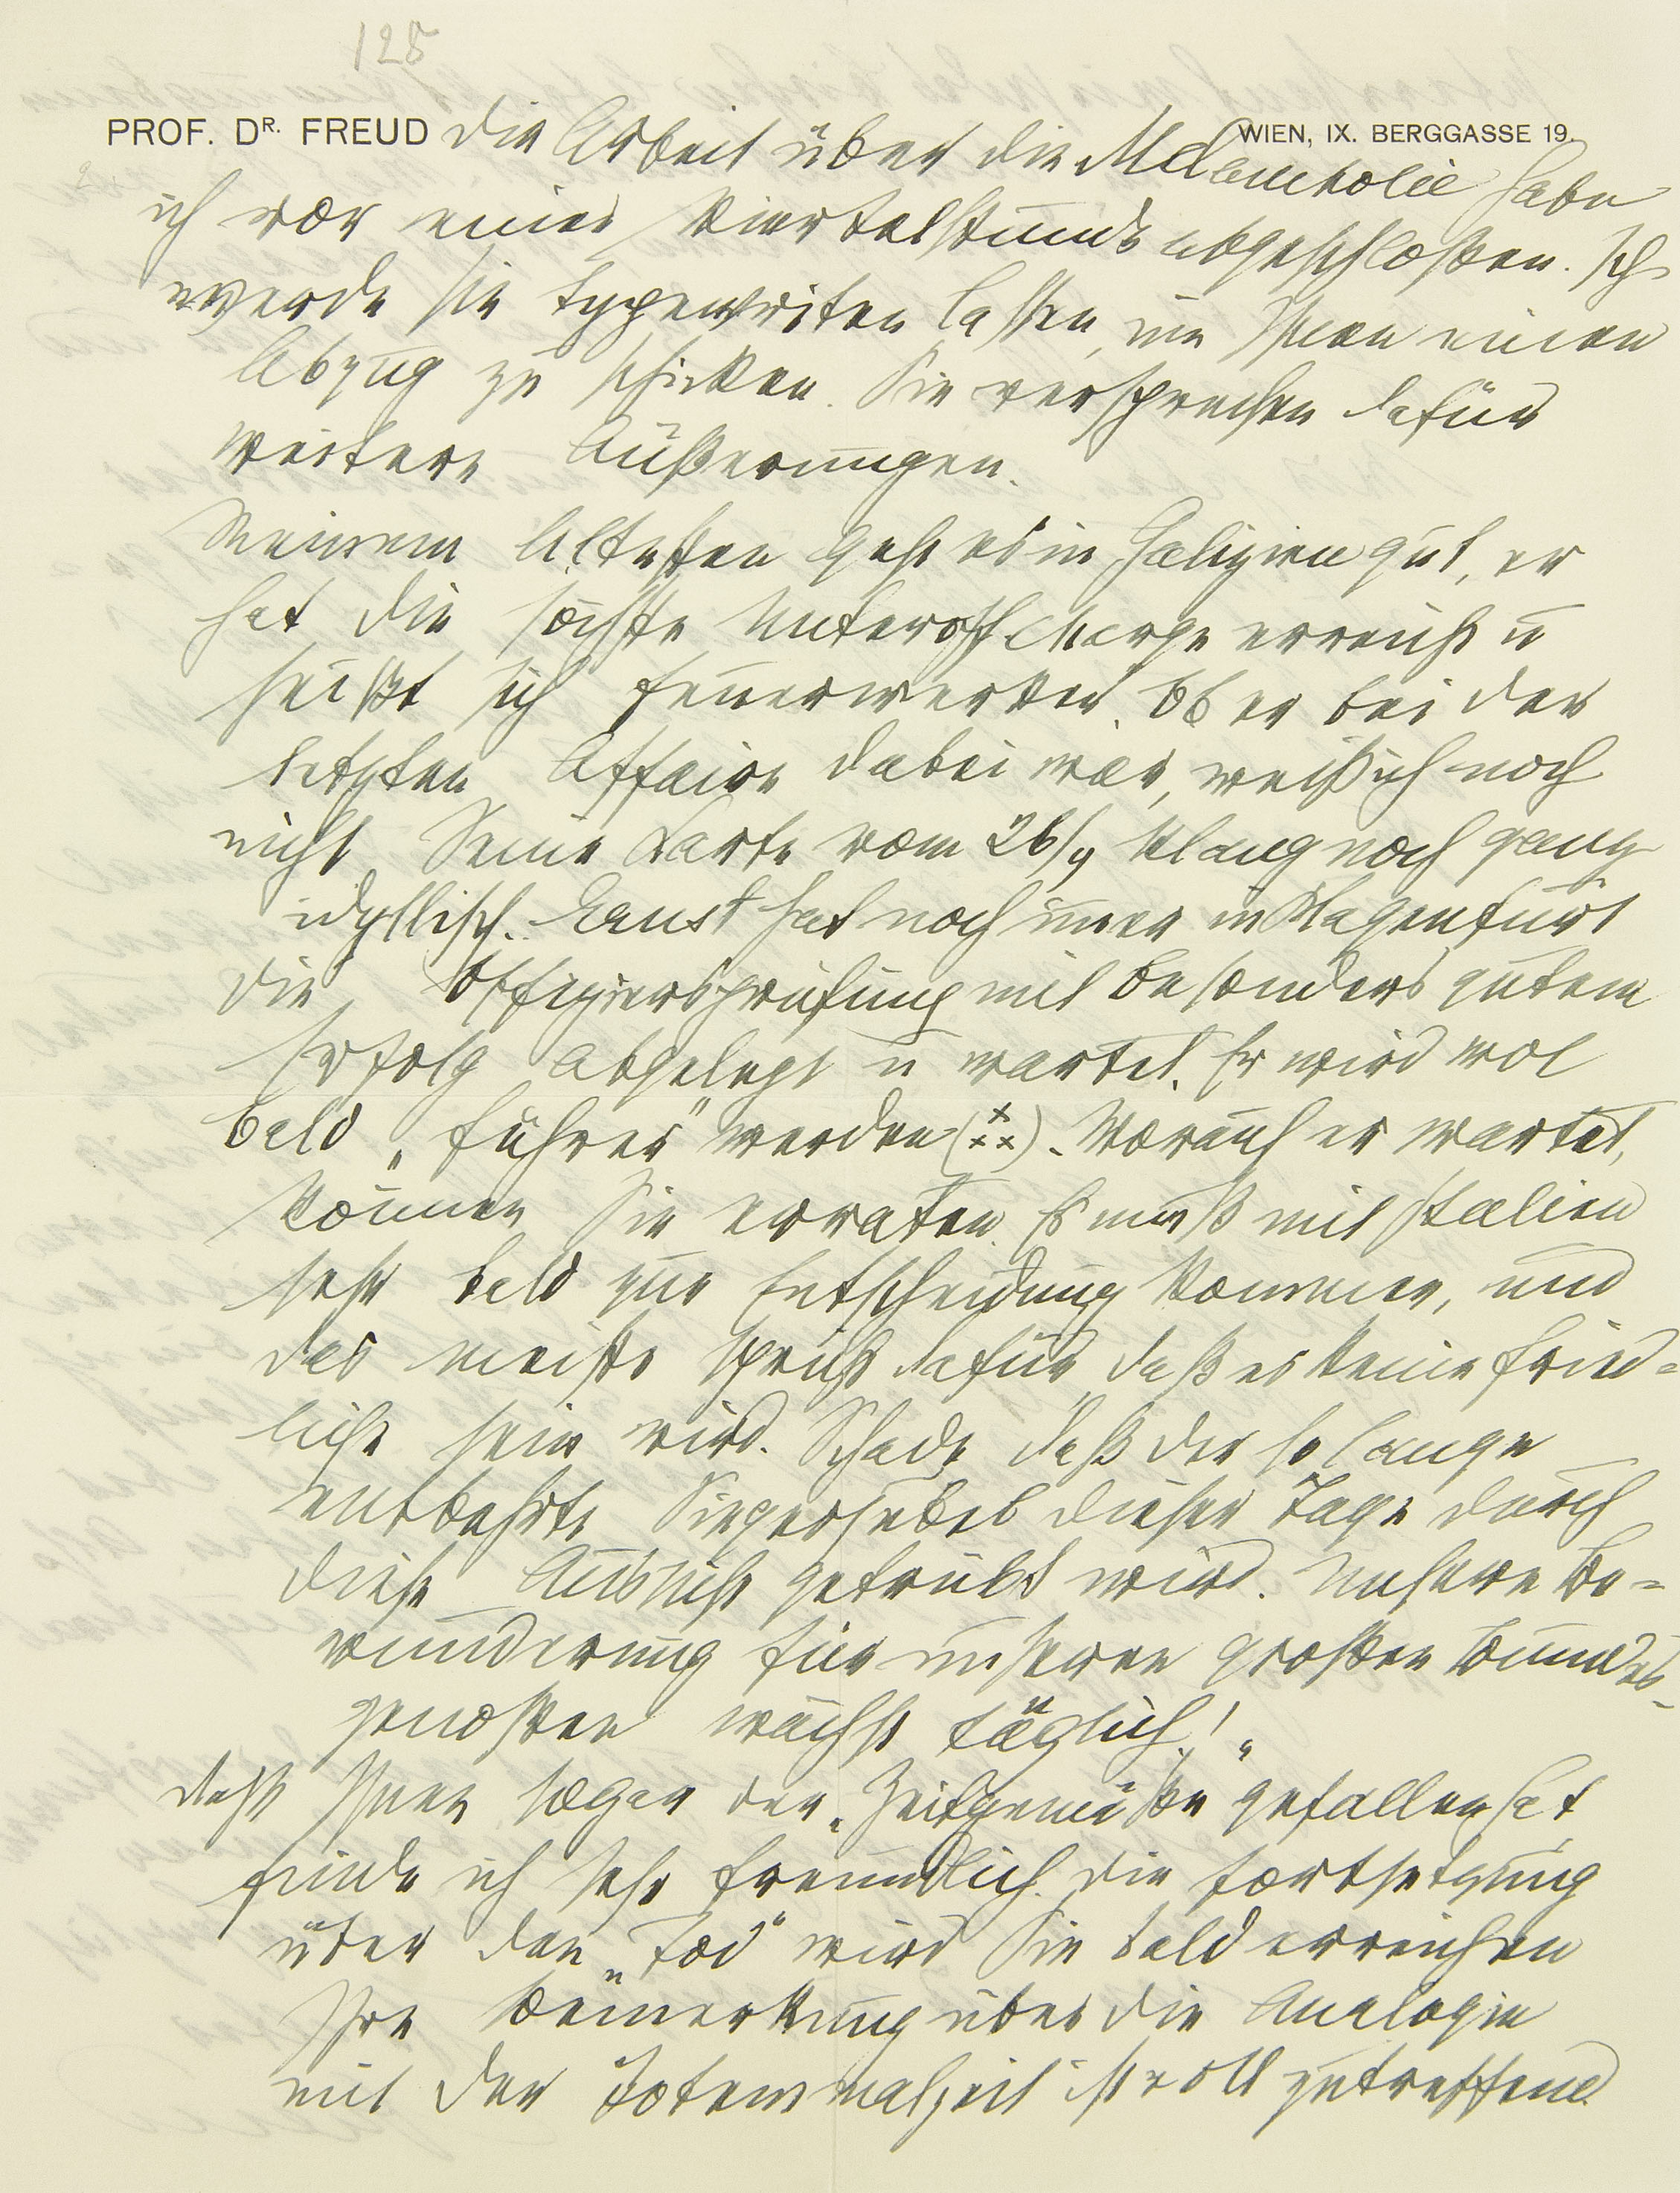 125
PROF. DR. FREUD WIEN, IX. BERGGASSE 19.
Die Arbeit über die Melancholie habe
ich vor einer Viertelstunde abgeschloßen. Ich
werde sie typewriten lassen, um Ihnen einen
Abzug zu schicken. Sie versprechen dafür
weitere Äußerungen.
Meinem Ältesten geht es in Galizien gut, er
hat die höchste Unteroffcharge erreicht u
heißt sich Feuerwerker. Ob er bei der
letzten Affaire dabei war, weiß ich noch
nicht. Seine Karte vom 26/4 klang noch ganz
idyllisch. Ernst hat noch immer in Klagenfurt
die Offiziersprüfung mit besonders gutem
Erfolg abgelegt u wartet. Er wird wol
bald „Führer“ werden (×××). Worauf er wartet,
können Sie erraten. Es muß mit Italien
sehr bald zur Entscheidung kommen, und
das meiste spricht dafür, daß es keine fried-
liche sein wird. Schade daß der so lange
entbehrte Siegesjubel dieser Tage durch
diese Aussicht getrübt wird. Unsere Be-
wunderung für unseren großen Bundes-
genoßen wächst täglich!
Daß Ihnen sogar der „Zeitgemäße“ gefallen hat
finde ich sehr freundlich. Die Fortsetzung
über den „Tod“ wird Sie bald erreichen
Ihre Bemerkung über die Analogie
mit der Totemmalzeit ist voll zutreffend.